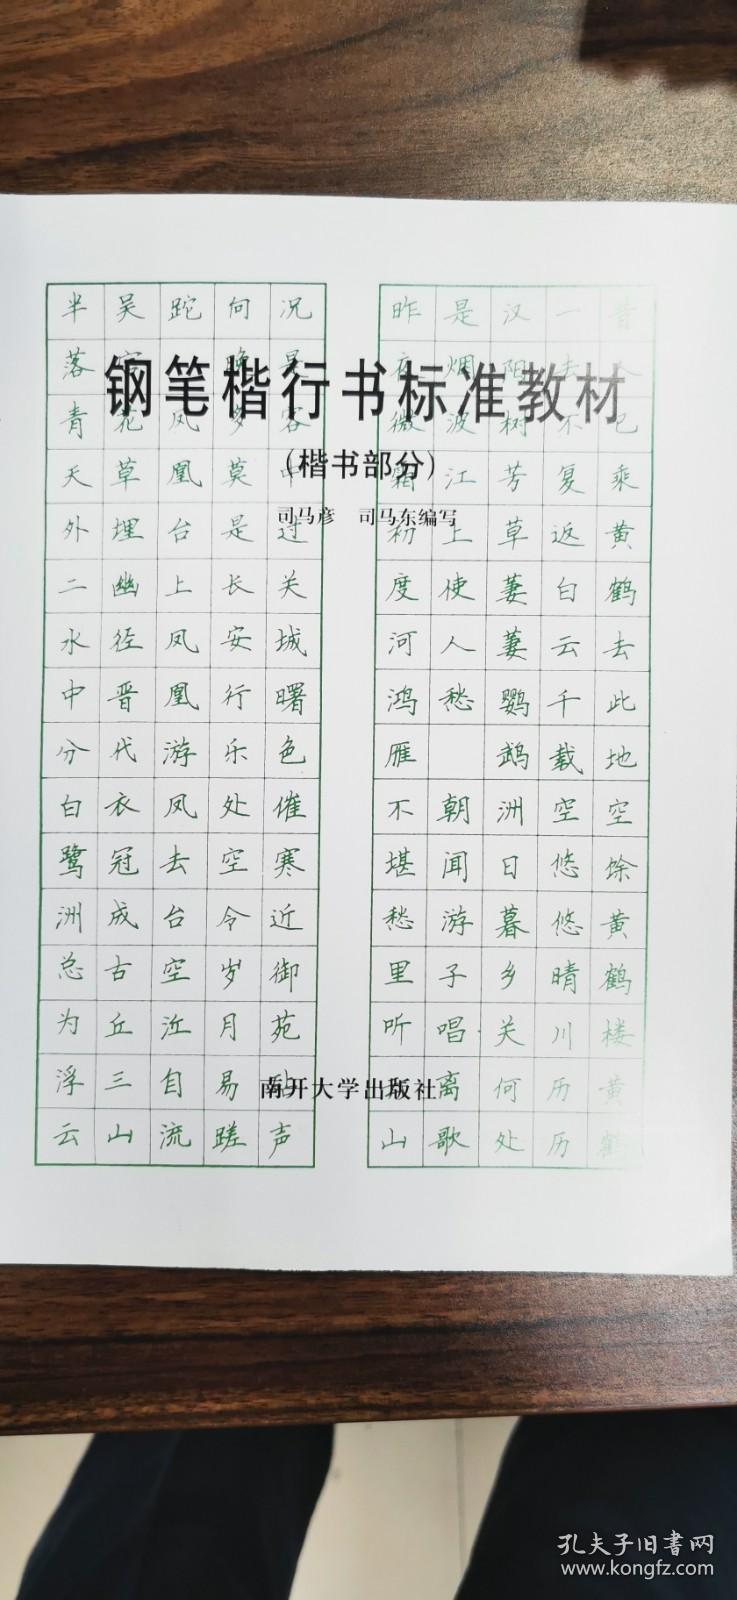 钢笔楷行书标准教材
(楷书部分)
司马彦 司马东编写
昔人已乘黄鹤去此地空馀黄鹤楼黄鹤
一去不复返白云千载空悠悠晴川历历
汉阳树芳草萋萋鹦鹉洲日暮乡关何处
是烟波江上使人愁 朝闻游子唱离歌
昨夜微霜初度河鸿雁不堪愁里听云山
况是客中过关城曙色催寒近御苑砧声
向晚多莫是长安行乐处空令岁月易蹉
跎 凤凰台上凤凰游凤去台空江自流
吴宫花草埋幽径晋代衣冠成古丘三山
半落青天外二水中分白鹭洲总为浮云
南开大学出版社
孔夫子旧书网
www.kongfz.com